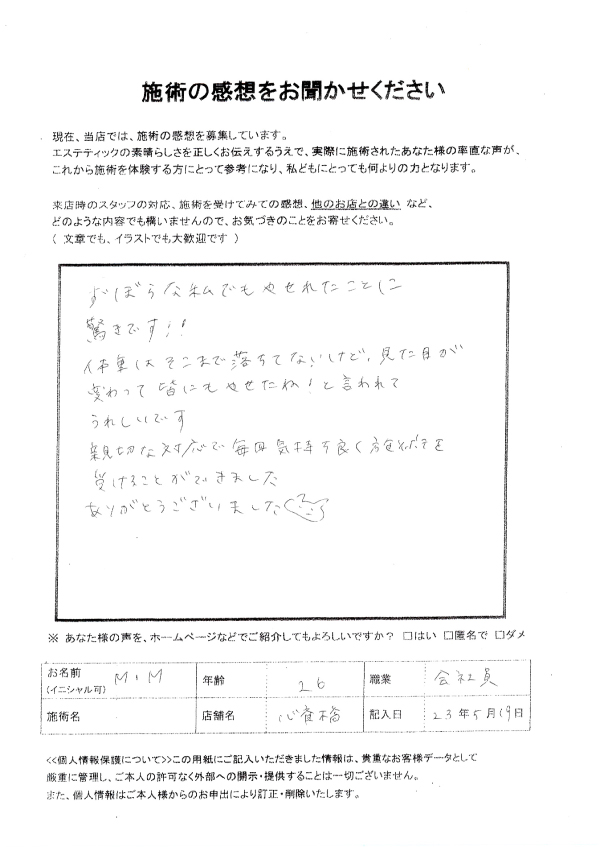 施術の感想をお聞かせください
現在、当店では、施術の感想を募集しています。
エステティックの素晴らしさを正しくお伝えするうえで、実際に施術されたあなた様の率直な声が、
これから施術を体験する方にとって参考になり、私どもにとっても何よりの力となります。
来店時のスタッフの対応、施術を受けてみての感想、他のお店との違い など、
どのような内容でも構いませんので、お気づきのことをお寄せください。
( 文章でも、イラストでも大歓迎です )
ずぼらな私でもやせれたことに
驚きです!!
体重はそこまで落ちてないけど、見た目が
変わって皆にもやせたね!と言われて
うれしいです
親切な対応で毎回気持ち良く施術を
受けることができました
ありがとうございました
※ あなた様の声を、ホームページなどでご紹介してもよろしいですか? □はい □匿名で □ダメ
お名前 (イニシャル可) M・M 年齢 26 職業 会社員
施術名 店舗名 心斎橋 記入日 23年5月19日
<<個人情報保護について>>この用紙にご記入いただきました情報は、貴重なお客様データとして
厳重に管理し、ご本人の許可なく外部への開示・提供することは一切ございません。
また、個人情報はご本人様からのお申出により訂正・削除いたします。